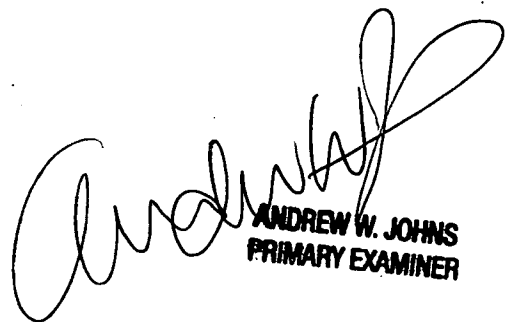 Andrew J
ANDREW W. JOHNS
PRIMARY EXAMINER